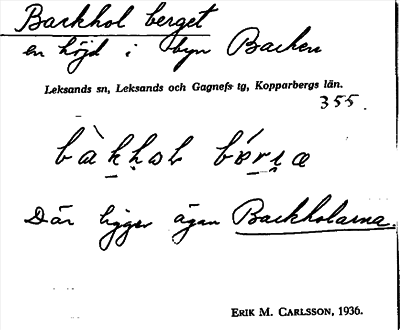 Backhol berget
en höjd i byn Backen
Leksands sn, Leksands och Gagnefs tg, Kopparbergs län.
355.
Där ligger ägan Backholarna.
ERIK M. CARLSSON, 1936.